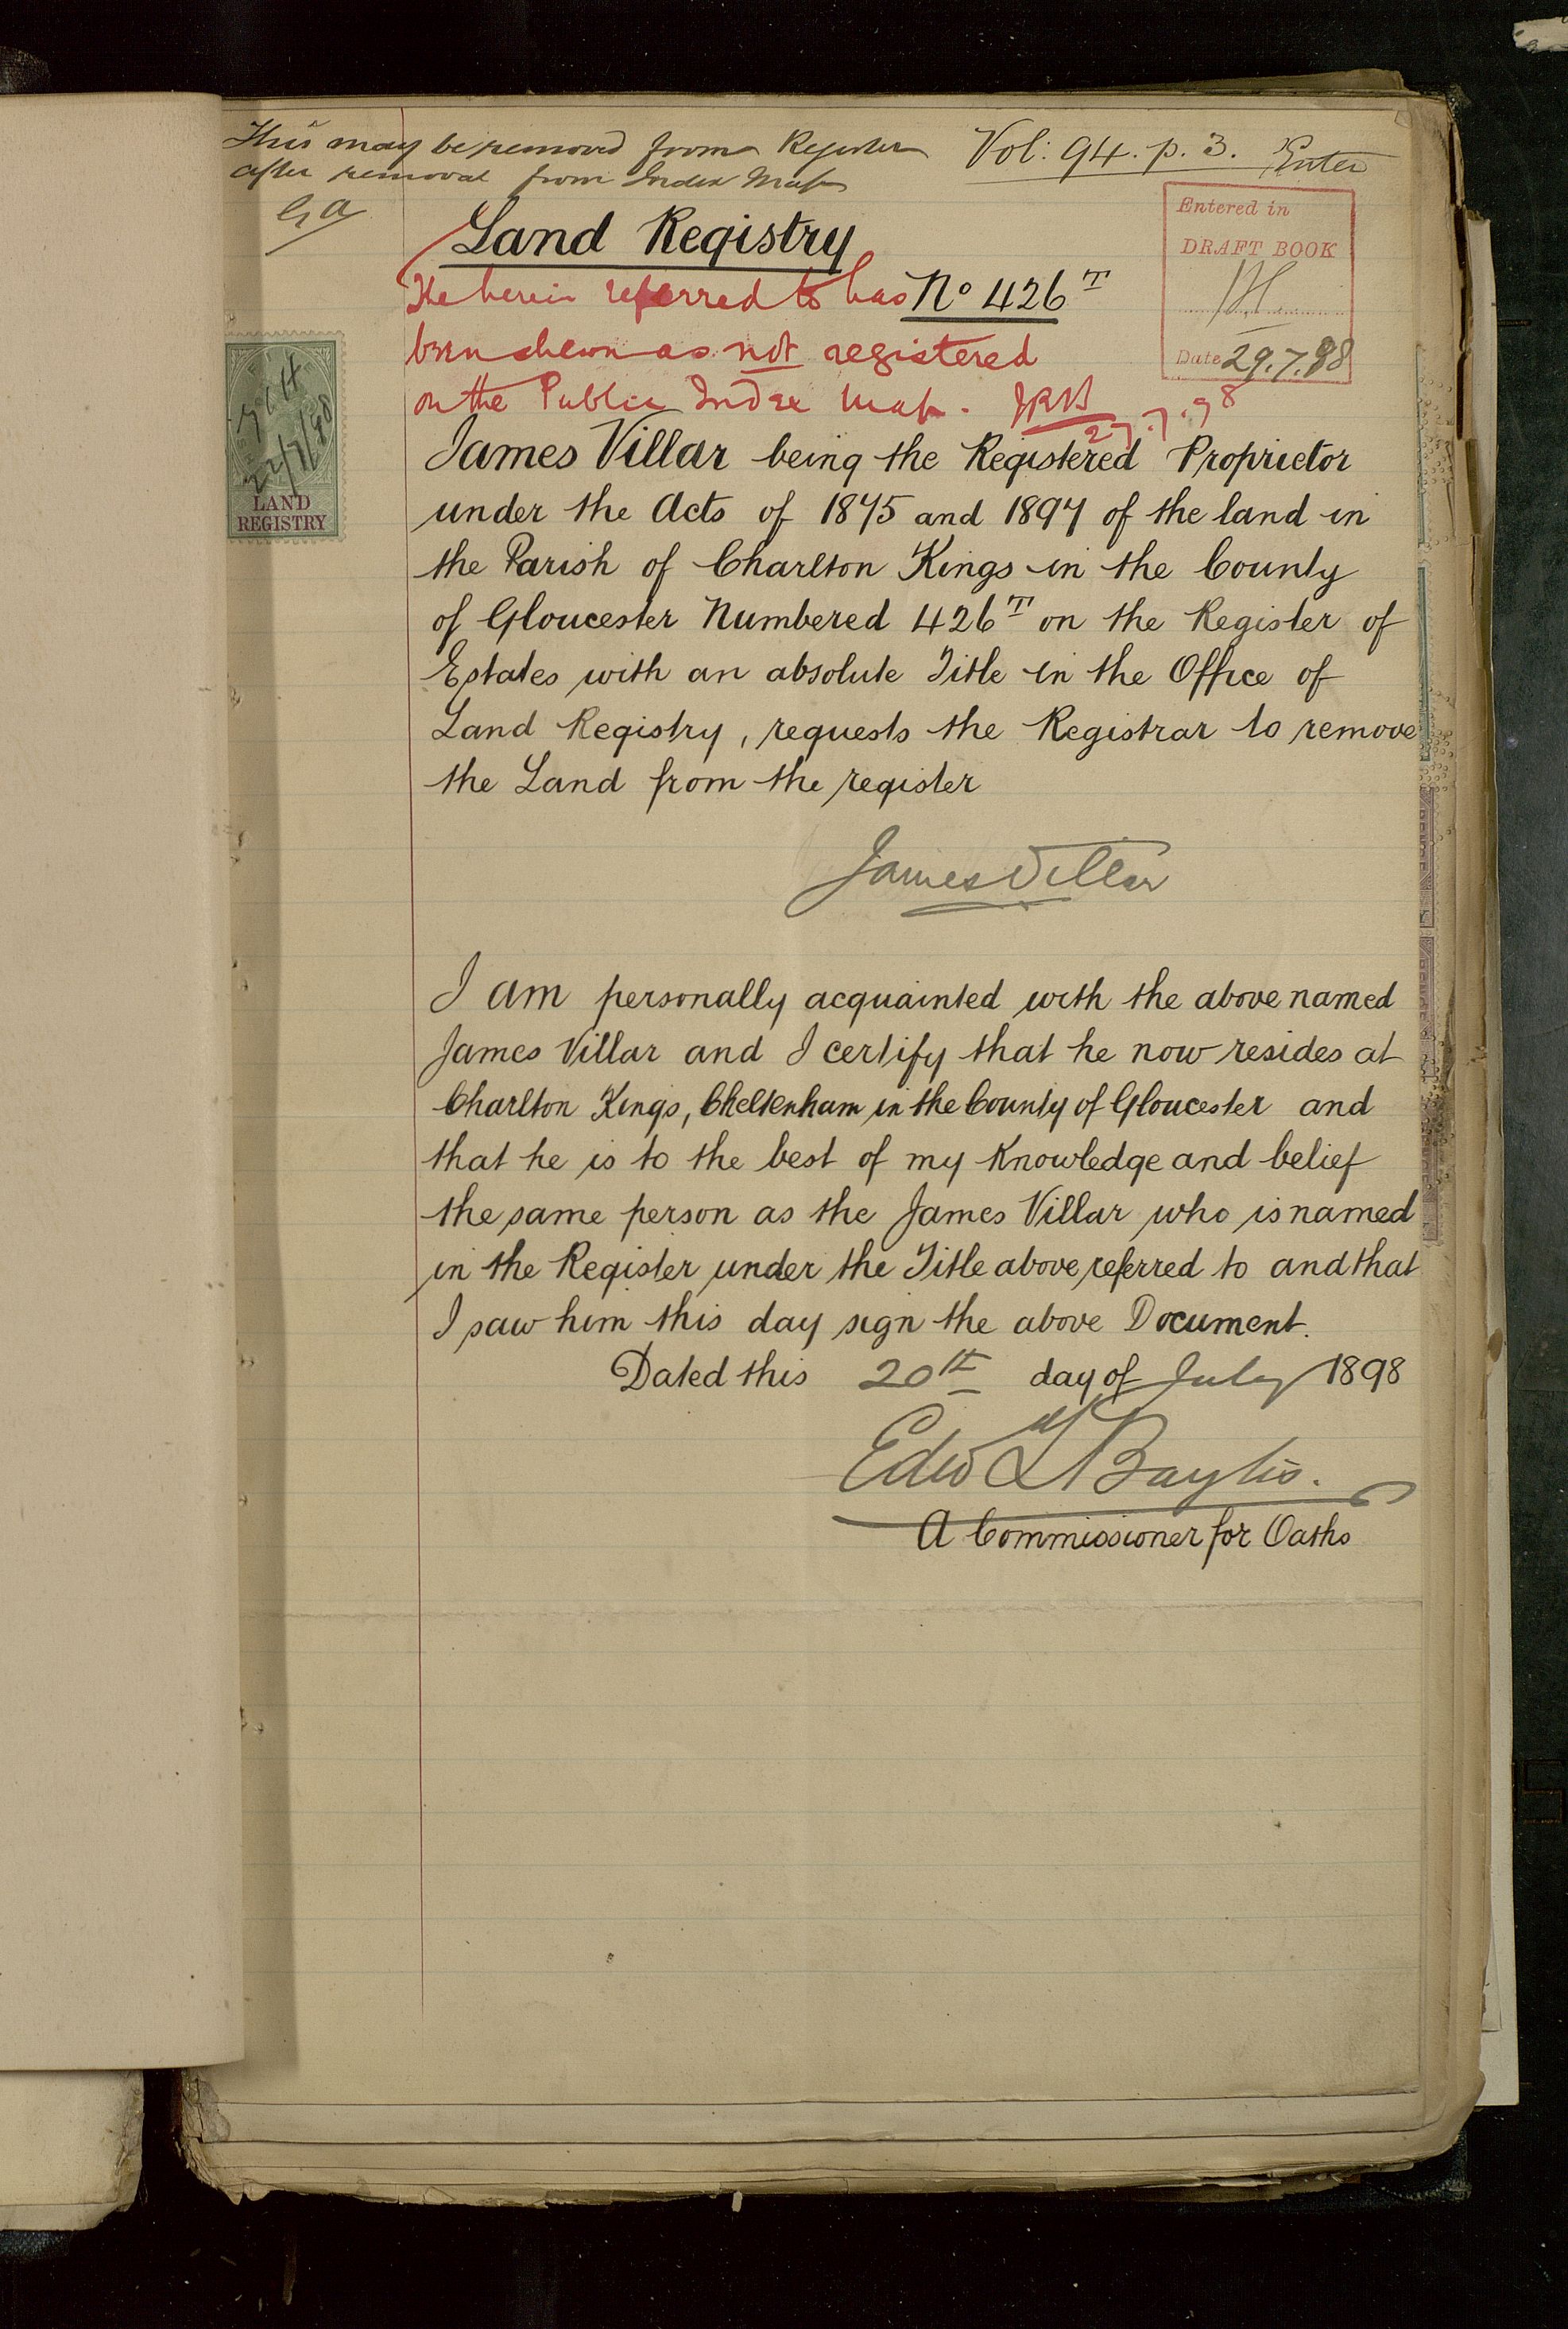 This may be removed from Register
after removal from Index Map
Vol: 94. p. 3. Enter
Entered in
DRAFT BOOK
Date 29.7.98
Land Registry
No 426T
The herein referred to has
been shewn as not registered
on the Public Index Map. JRB
27.7.98
22/7/98
LAND
REGISTRY
James Villar being the Registered Proprietor
under the Acts of 1875 and 1897 of the land in
the Parish of Charlton Kings in the County
of Gloucester Numbered 426T on the Register of
Estates with an absolute Title in the Office of
Land Registry, requests the Registrar to remove
the Land from the register
James Villar
I am personally acquainted with the above named
James Villar and I certify that he now resides at
Charlton Kings, Cheltenham in the County of Gloucester and
that he is to the best of my Knowledge and belief
the same person as the James Villar who is named
in the Register under the Title above referred to and that
I saw him this day sign the above Document.
Dated this 20th day of July 1898
Baylis.
A Commissioner for Oaths